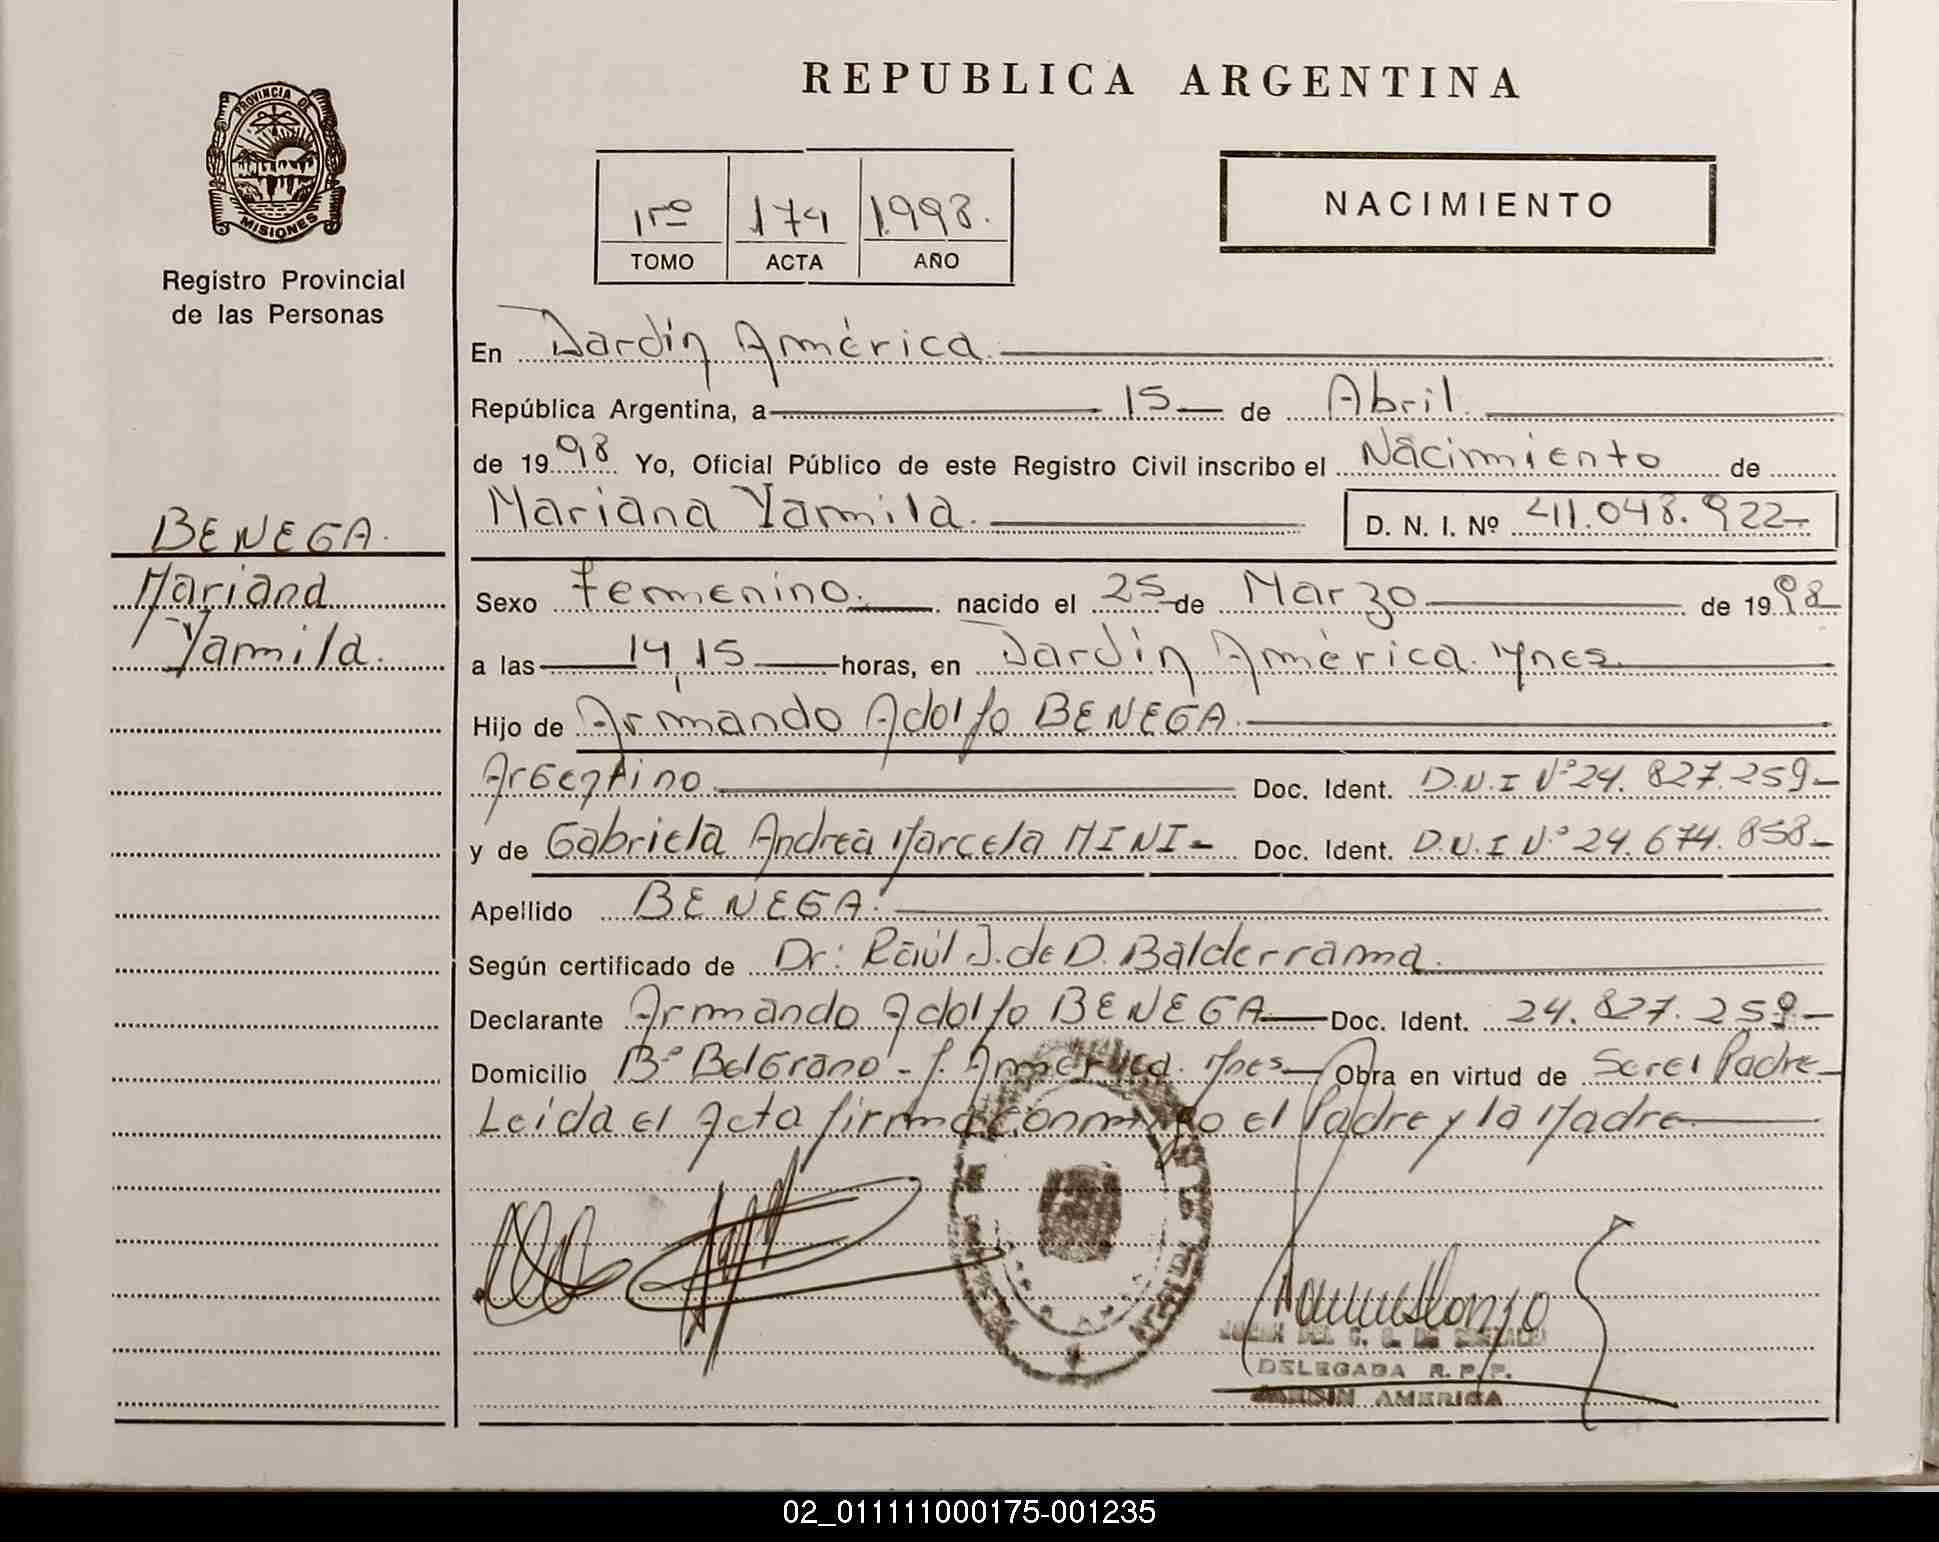 PROVINCIA DE
MISIONES
Registro Provincial
de las Personas
BENEGA.
Mariana
Yamila.
REPUBLICA ARGENTINA
1ro 174 1.998.
TOMO ACTA AÑO
NACIMIENTO
En Jardín América.
República Argentina, a 15 de Abril.
de 1998 Yo, Oficial Público de este Registro Civil inscribo el Nacimiento de
Mariana Yamila. D. N. I. Nº 41.048.922-
Sexo Femenino. nacido el 25 de Marzo de 1998
a las 14,15 horas, en Jardín América. Mnes.
Hijo de Armando Adolfo BENEGA.
Argentino Doc. Ident. D.N.I Nº 24.827.259-
y de Gabriela Andrea Marcela MINI- Doc. Ident. D.N.I Nº 24.674.858-
Apellido BENEGA.
Según certificado de Dr: Raúl J. de D. Balderrama.
Declarante Armando Adolfo BENEGA Doc. Ident. 24.827.259-
Domicilio Bº Belgrano - J. América. Mnes Obra en virtud de Ser el Padre
Leida el Acta firma conmigo el Padre y la Madre
DELEGADA R.P.P.
JARDIN AMERICA
02_011111000175-001235